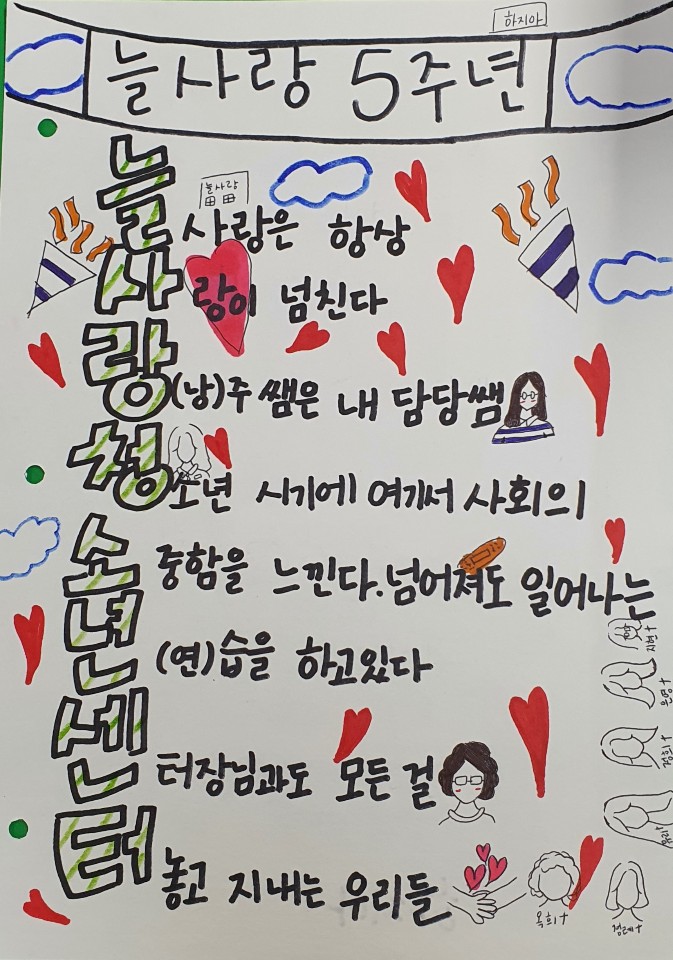 하지아
늘사랑 5주년
늘사랑
늘 사랑은 항상
사 랑이 넘친다
랑 (낭)주 쌤은 내 담당쌤
청 소년 시기에 여기서 사회의
소 중함을 느낀다. 넘어져도 일어나는
년 (연)습을 하고있다
센 터장님과도 모든 걸
터 놓고 지내는 우리들
지현†
은영†
경희†
유리†
옥희†
경례†